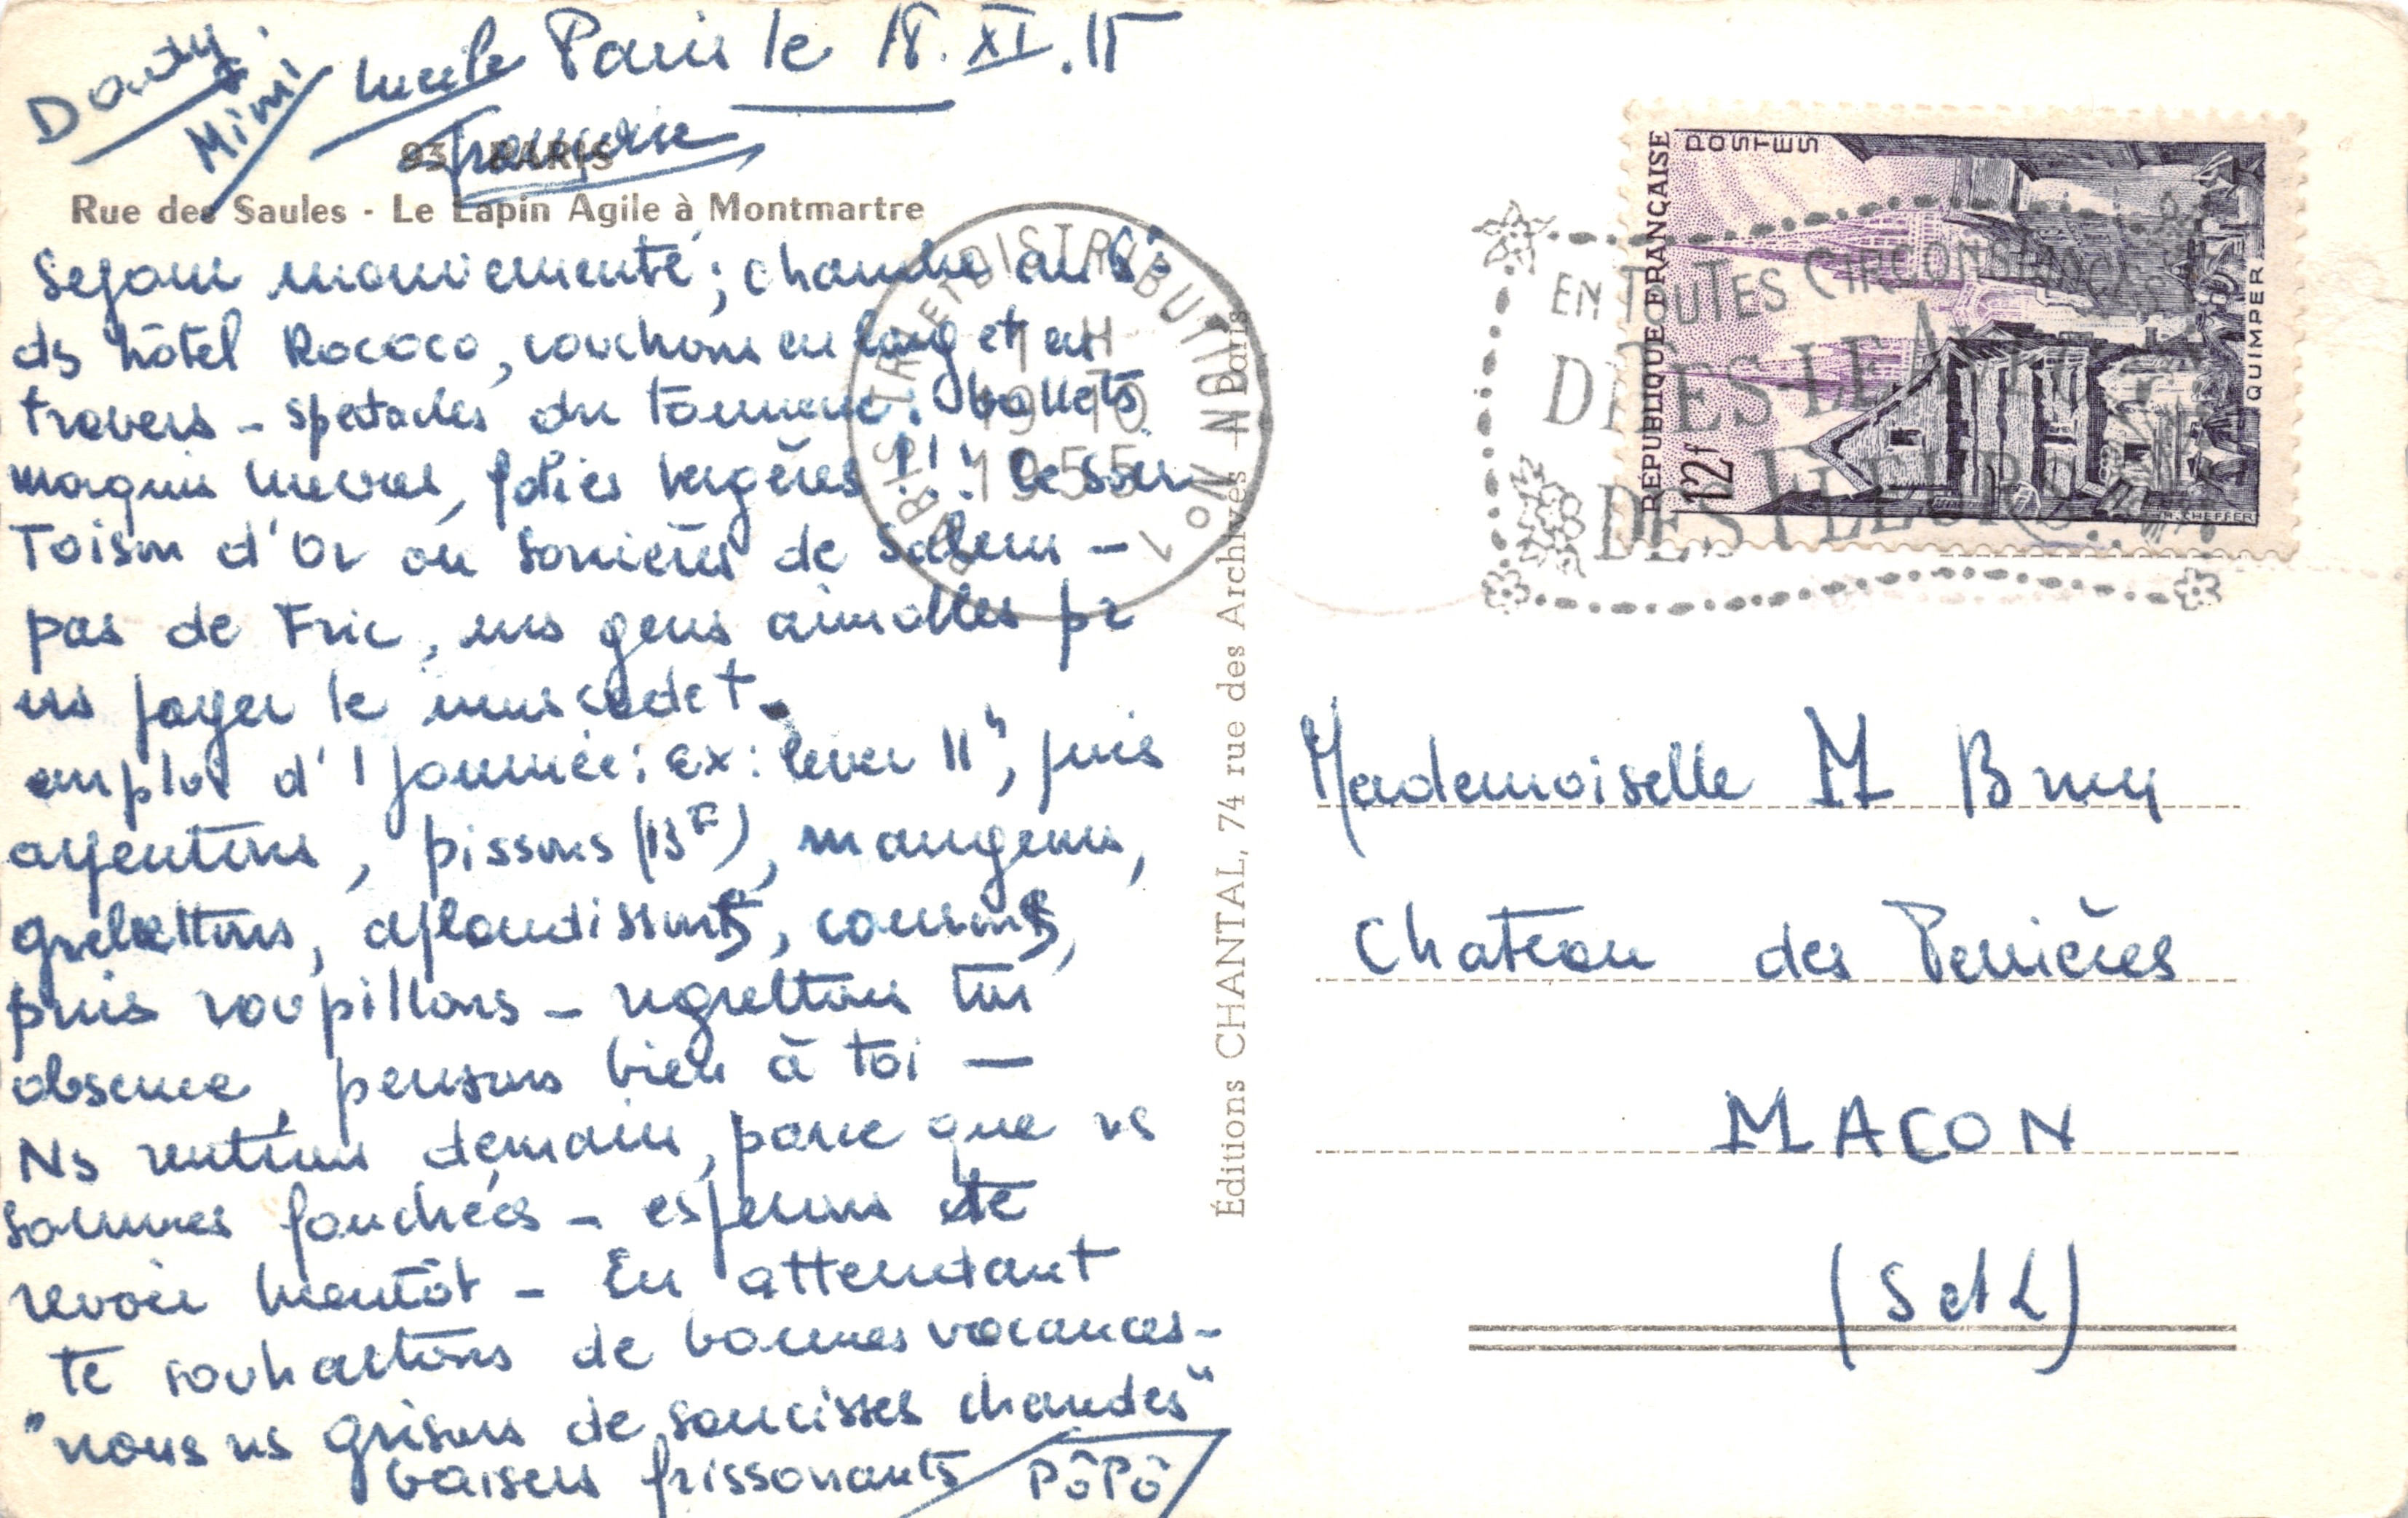 Dany
Mimi
Lucile
Paris le 18.XI.55
Françoise
93 PARIS
Rue des Saules - Le Lapin Agile à Montmartre
Sejour mouvementé ; chambre au 6°
ds hôtel Rococo, couchons en long et en
travers - spectacles du tonnerre : ballets
marquis cuevas, folies bergères !!! Ce soir
Toison d'Or ou Sorcières de Salem -
pas de Fric, des gens aimables pr
ns payer le muscadet.
emploi d'1 journée : ex : lever 11h, puis
argentons, pissons (15F), mangeons,
grelottons, aplaudissons, courons,
puis roupillons - regrettons ton
absence, pensons bien à toi —
Ns rentrons demain, parce que ns
sommes fauchées - esperons te
revoir bientôt - En attendant
te souhaitons de bonnes vacances -
"nous ns grisons de saucisses chaudes"
baisers frissonants
PôPô
Éditions CHANTAL, 74 rue des Archives - Paris
PARIS TRI ET DISTRIBUTION No 1
19-10
1955
EN TOUTES CIRCONSTANCES
DITES-LE AVEC
DES FLEURS
RÉPUBLIQUE FRANÇAISE
POSTES
12f
QUIMPER
Mademoiselle M Bruy
Chateau des Perrières
MACON
(S et L)